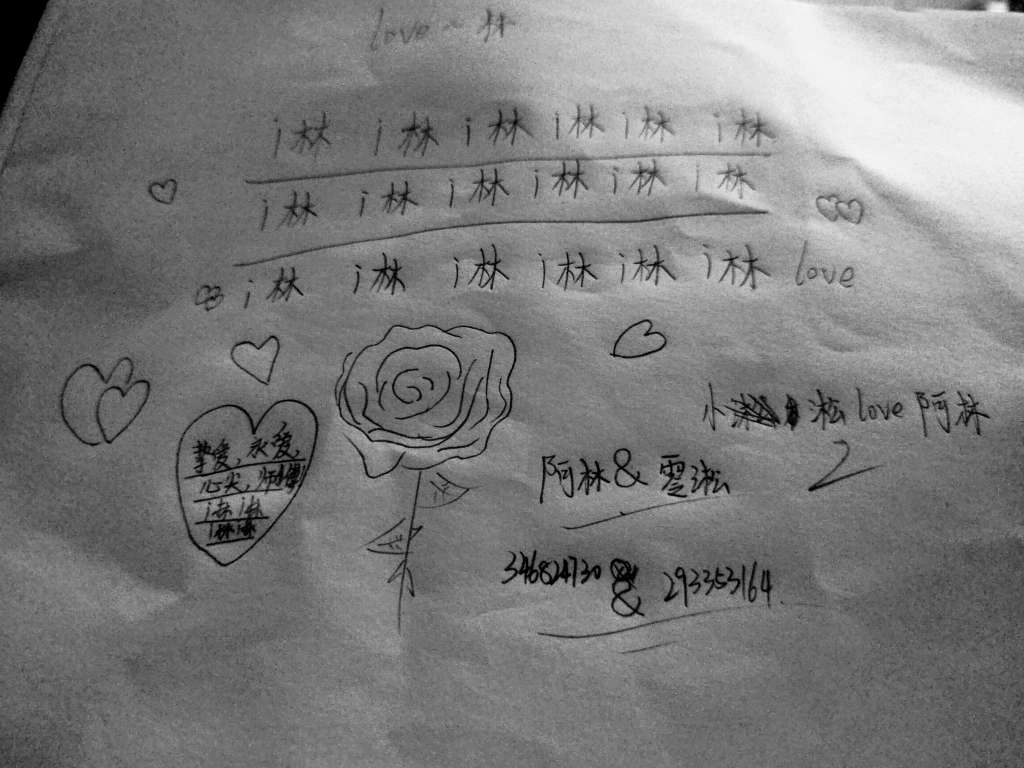 love~林
i林 i林 i林 i林 i林 i林
i林 i林 i林 i林 i林 i林
i林 i林 i林 i林 i林 i林 love
小 淞love阿林
2
阿林&霊淞
挚爱,永爱,
心尖,
i林i林
i林i林
346824730 & 293353164